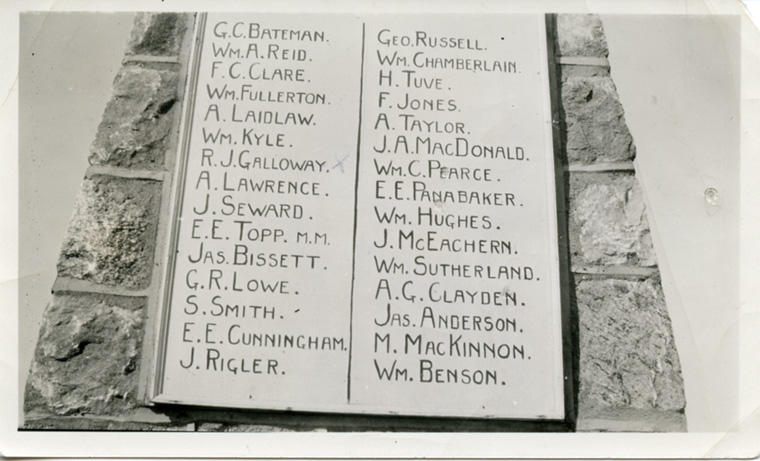 G.C. BATEMAN.
WM. A. REID.
F. C. CLARE.
WM. FULLERTON.
A. LAIDLAW.
WM. KYLE.
R. J. GALLOWAY. X
A. LAWRENCE.
J. SEWARD.
E. E. TOPP. M.M.
JAS. BISSETT.
G. R. LOWE.
S. SMITH.
E. E. CUNNINGHAM.
J. RIGLER.
GEO. RUSSELL.
WM. CHAMBERLAIN.
H. TUVE.
F. JONES.
A. TAYLOR.
J. A. MACDONALD.
WM. C. PEARCE.
E. E. PANABAKER.
WM. HUGHES.
J. MCEACHERN.
WM. SUTHERLAND.
A. G. CLAYDEN.
JAS. ANDERSON.
M. MACKINNON.
WM. BENSON.